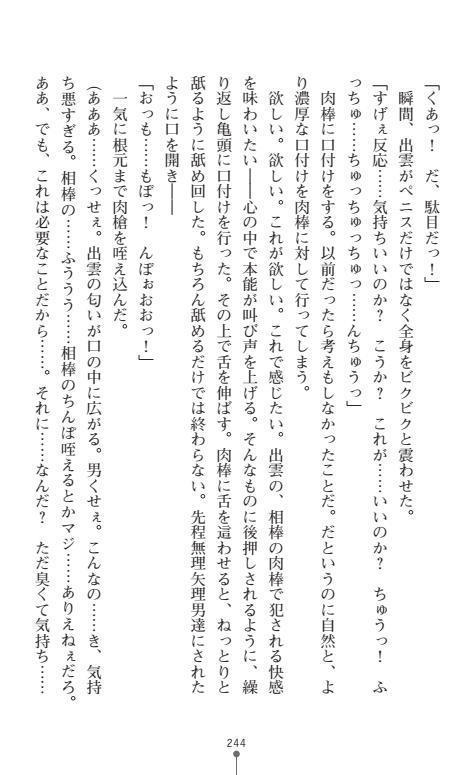 「くあっ！　だ、駄目だっ！」
　瞬間、出雲がペニスだけではなく全身をビクビクと震わせた。
「すげぇ反応……気持ちいいのか？　こうか？　これが……いいのか？　ちゅうっ！　ふ
っちゅ……ちゅっちゅっちゅっ……んちゅうっ」
　肉棒に口付けをする。以前だったら考えもしなかったことだ。だというのに自然と、よ
り濃厚な口付けを肉棒に対して行ってしまう。
　欲しい。欲しい。これが欲しい。これで感じたい。出雲の、相棒の肉棒で犯される快感
を味わいたい――心の中で本能が叫び声を上げる。そんなものに後押しされるように、繰
り返し亀頭に口付けを行った。その上で舌を伸ばす。肉棒に舌を這わせると、ねっとりと
舐るように舐め回した。もちろん舐めるだけでは終わらない。先程無理矢理男達にされた
ように口を開き――
「おっも……もぼっ！　んぽぉおおっ！」
　一気に根元まで肉槍を咥え込んだ。
（あああ……くっせぇ。出雲の匂いが口の中に広がる。男くせぇ。こんなの……き、気持
ち悪すぎる。相棒の……ふううう……相棒のちんぽ咥えるとかマジ……ありえねぇだろ。
ああ、でも、これは必要なことだから……。それに……なんだ？　ただ臭くて気持ち……
244